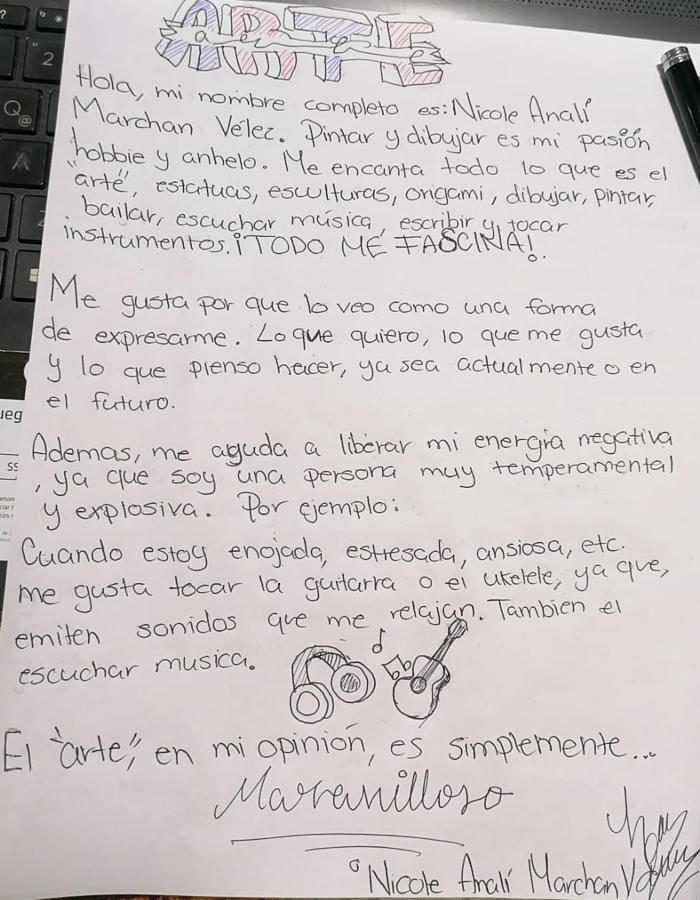 ARTE
Hola, mi nombre completo es: Nicole Analí
Marchan Vélez. Pintar y dibujar es mi pasión
hobbie y anhelo. Me encanta todo lo que es el
"arte", estatuas, esculturas, origami, dibujar, pintar,
bailar, escuchar música, escribir y tocar
instrumentos. ¡TODO ME FASCINA!
Me gusta por que lo veo como una forma
de expresarme. Lo que quiero, lo que me gusta
y lo que pienso hacer, ya sea actualmente o en
el futuro.
Ademas, me ayuda a liberar mi energía negativa
, ya que soy una persona muy temperamental
y explosiva. Por ejemplo:
Cuando estoy enojada, estresada, ansiosa, etc.
me gusta tocar la guitarra o el ukelele, ya que,
emiten sonidos que me relajan. Tambien el
escuchar musica.
El "arte", en mi opinión, es simplemente...
Maravilloso
Nicole Analí Marchan V